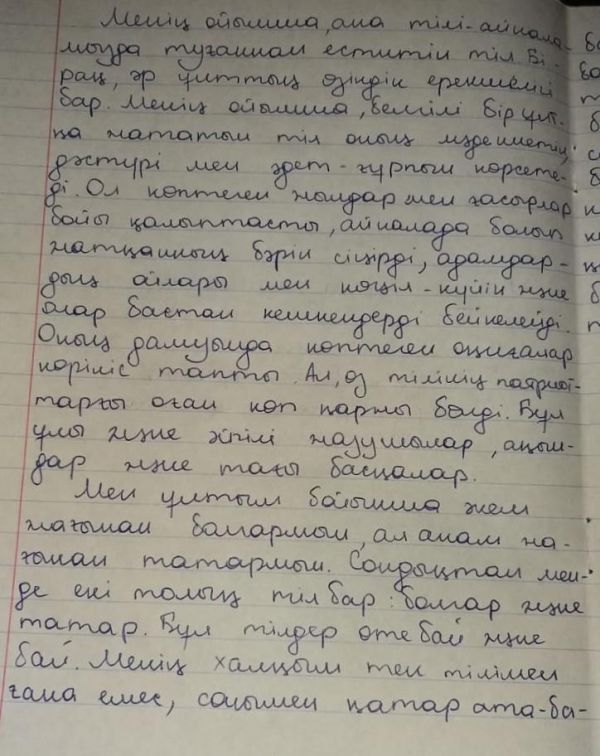 Менің ойымша, ана тілі-айнала-
мызда туғаннан еститін тіл. Бі-
рақ, әр ұлттың өзіндік ерекшелігі
бар. Менің ойымша, белгілі бір ұлт-
қа жататын тіл оның мәдениетін,
дәстүрі мен әдет-ғұрпын көрсете-
ді. Ол көптеген жылдар мен ғасырлар
бойы қалыптасты, айналада болып
жатқанның бәрін сіңірді, адамдар-
дың ойлары мен көңіл-күйін және
олар бастан кешкендерді бейнелейді.
Оның дамуында көптеген оқиғалар
көрініс тапты. Ал, өз тілінің патриот-
тарғы оған көп қаржы бөлді. Бұл
ұлы және әйгілі жазушылар, ақын-
дар және тағы басқалар.
Мен ұлтым бойынша әкем
жағынан болгармын, ал анам жа-
ғынан татармын. Сондықтан мен-
де екі толық тіл бар: болгар және
татар. Бұл тілдер өте бай және
бай. Менің халқым тек тілімен
ғана емес, сонымен қатар ата-ба-